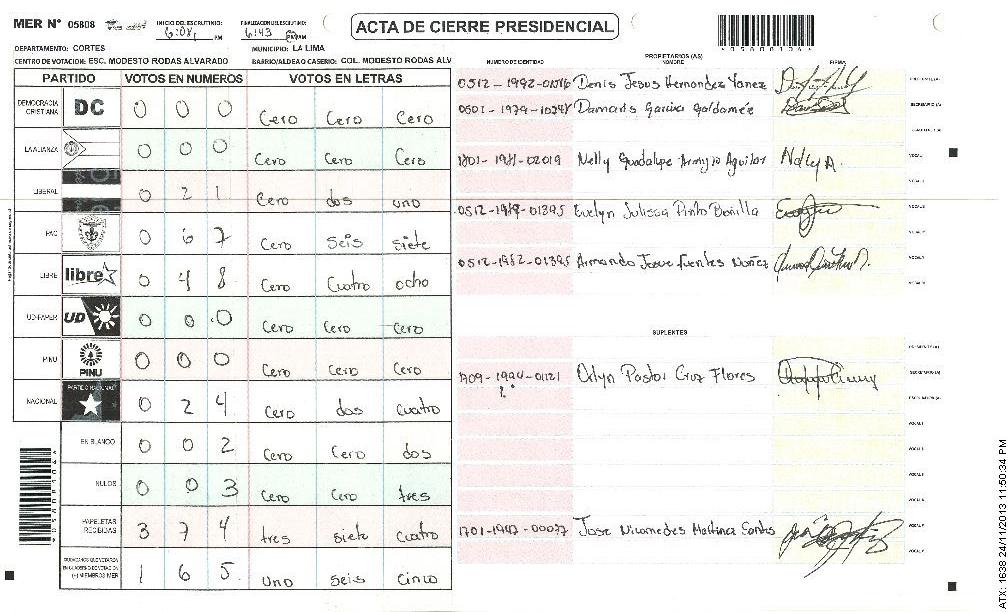 MER N° 05808
INICIO DEL ESCRUTINIO: 6:08 PM
FINALIZACION DEL ESCRUTINIO: 6:43 PM
ACTA DE CIERRE PRESIDENCIAL
DEPARTAMENTO: CORTES
MUNICIPIO: LA LIMA
CENTRO DE VOTACION: ESC. MODESTO RODAS ALVARADO
BARRIO/ALDEA O CASERIO: COL. MODESTO RODAS ALV
PARTIDO VOTOS EN NUMEROS VOTOS EN LETRAS
DEMOCRACIA CRISTIANA DC 0 0 0 Cero Cero Cero
LA ALIANZA 0 0 0 Cero Cero Cero
LIBERAL 0 2 1 Cero dos uno
PAC 0 6 7 Cero Seis siete
LIBRE libre 0 4 8 Cero Cuatro ocho
UD-FAPER UD 0 0 0 Cero Cero Cero
PINU PINU 0 0 0 Cero Cero Cero
NACIONAL PARTIDO NACIONAL 0 2 4 Cero dos Cuatro
EN BLANCO 0 0 2 Cero Cero dos
NULOS 0 0 3 Cero Cero tres
PAPELETAS RECIBIDAS 3 7 4 tres siete Cuatro
CIUDADANOS QUE VOTARON EN CUADERNO DE VOTACION (+) MIEMBROS MER 1 6 5 uno Seis Cinco
PROPIETARIOS (AS)
NUMERO DE IDENTIDAD NOMBRE FIRMA
Denis Jesus Hernandez Yanez PRESIDENTE (A)
Damaris Garcia Galdamez SECRETARIO (A)
ESCRUTADOR (A)
1801-1981-02019 Nelly Guadalupe Aguilar Nelly A. VOCAL I
Evelyn Julissa Pinto Bonilla
0512-1982-01395 Armando Josue fuentes Nuñez
SUPLENTES
PRESIDENTE (A)
Orlyn Pastor Cruz Flores SECRETARIO (A)
ESCRUTADOR (A)
Jose Nicomedes Martinez Santos
05808104
ATX: 1638 24/11/2013 11:50:34 PM